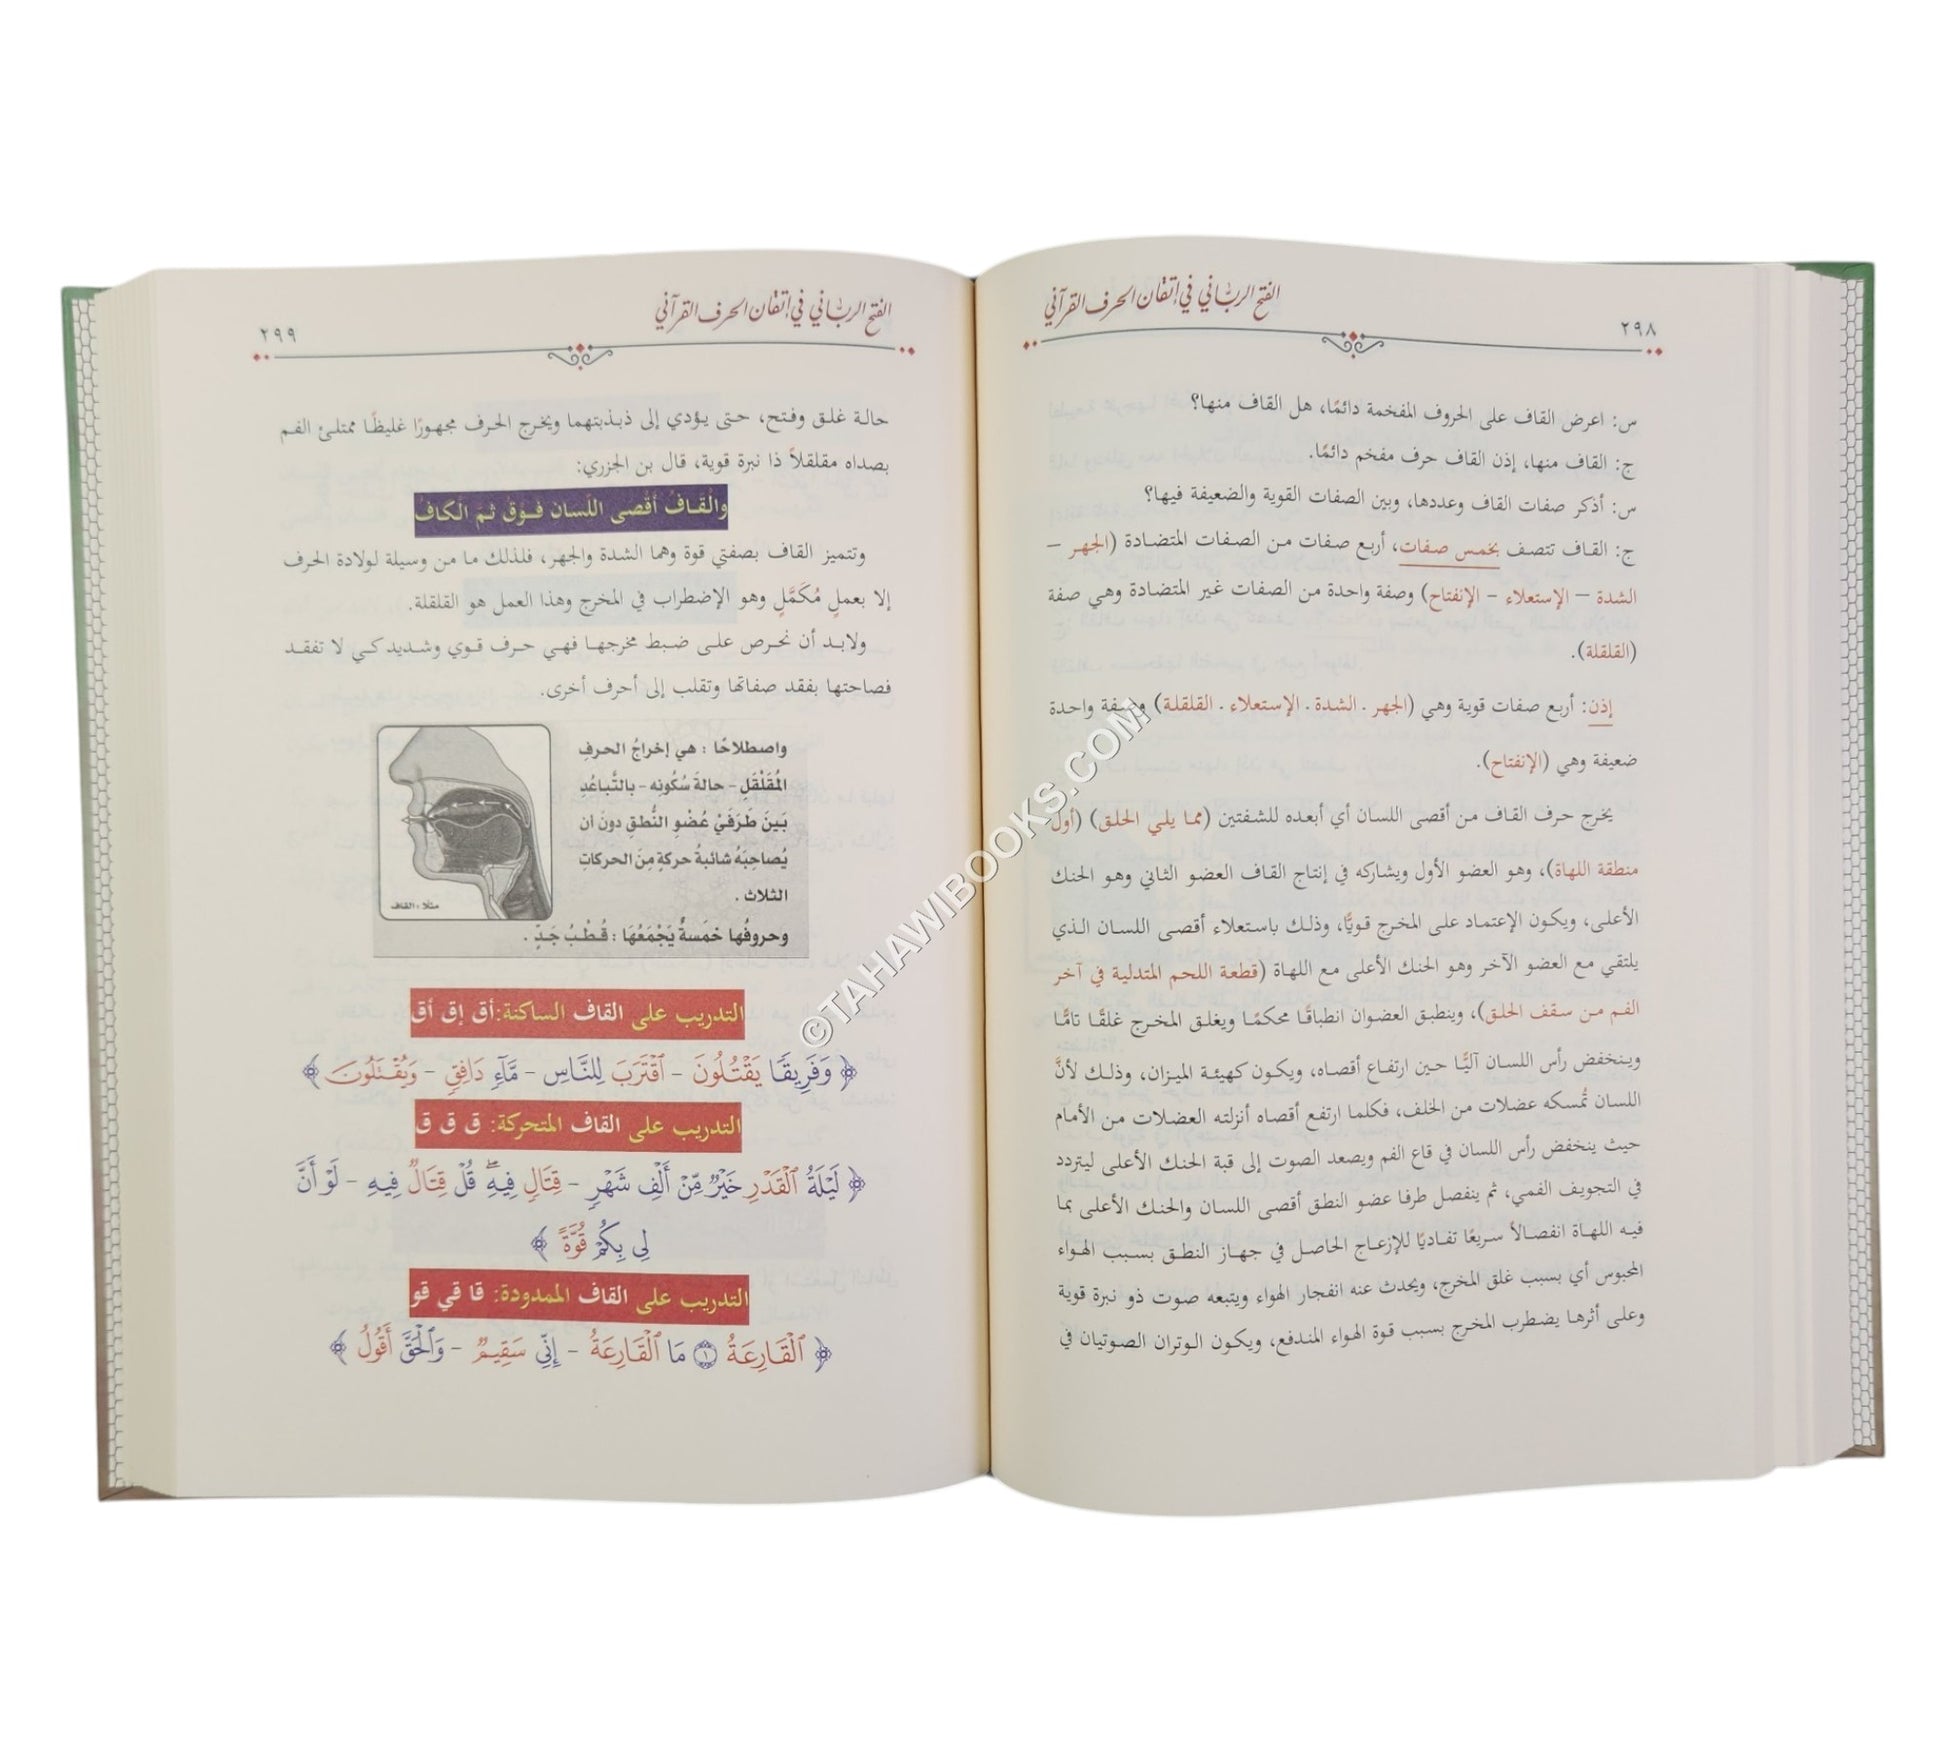 الفتح الرباني في إتقان الحرف القرآني
٢٩٨
س: اعرض القاف على الحروف المفخمة دائمًا، هل القاف منها؟
ج: القاف منها، إذن القاف حرف مفخم دائمًا.
س: أذكر صفات القاف وعددها، وبين الصفات القوية والضعيفة فيها؟
ج: القاف تتصف بخمس صفات، أربع صفات من الصفات المتضادة (الجهر –
الشدة – الإستعلاء – الإنفتاح) وصفة واحدة من الصفات غير المتضادة وهي صفة
(القلقلة).
إذن: أربع صفات قوية وهي (الجهر . الشدة . الإستعلاء . القلقلة) وصفة واحدة
ضعيفة وهي (الإنفتاح).
يخرج حرف القاف من أقصى اللسان أي أبعده للشفتين (مما يلي الحلق) (أول
منطقة اللهاة)، وهو العضو الأول ويشاركه في إنتاج القاف العضو الثاني وهو الحنك
الأعلى، ويكون الإعتماد على المخرج قويًّا، وذلك باستعلاء أقصى اللسان الذي
يلتقي مع العضو الآخر وهو الحنك الأعلى مع اللهاة (قطعة اللحم المتدلية في آخر
الفم من سقف الحلق)، وينطبق العضوان انطباقًا محكمًا ويغلق المخرج غلقًا تامًّا
وينخفض رأس اللسان آليًّا حين ارتفاع أقصاه، ويكون كهيئة الميزان، وذلك لأنَّ
اللسان تُمسكه عضلات من الخلف، فكلما ارتفع أقصاه أنزلته العضلات من الأمام
حيث ينخفض رأس اللسان في قاع الفم ويصعد الصوت إلى قبة الحنك الأعلى ليتردد
في التجويف الفمي، ثم ينفصل طرفا عضو النطق أقصى اللسان والحنك الأعلى بما
فيه اللهاة انفصالاً سريعًا تفاديًا للإزعاج الحاصل في جهاز النطق بسبب الهواء
المحبوس أي بسبب غلق المخرج، ويحدث عنه انفجار الهواء ويتبعه صوت ذو نبرة قوية
وعلى أثرها يضطرب المخرج بسبب قوة الهواء المندفع، ويكون الوتران الصوتيان في
الفتح الرباني في إتقان الحرف القرآني
٢٩٩
حالة غلق وفتح، حتى يؤدي إلى ذبذبتهما ويخرج الحرف مجهورًا غليظًا ممتلئ الفم
بصداه مقلقلاً ذا نبرة قوية، قال بن الجزري:
والْقَافُ أقْصى اللِّسان فَوْقُ ثمَّ الْكَافُ
وتتميز القاف بصفتي قوة وهما الشدة والجهر، فلذلك ما من وسيلة لولادة الحرف
إلا بعملٍ مُكَمَّلٍ وهو الإضطراب في المخرج وهذا العمل هو القلقلة.
ولابد أن نحرص على ضبط مخرجها فهي حرف قوي وشديد كي لا تفقد
فصاحتها بفقد صفاتها وتقلب إلى أحرف أخرى.
واصطلاحًا : هي إخراجُ الحرفِ
المُقَلْقَلِ - حالةَ سُكُونِه - بالتَّباعُدِ
بَينَ طَرَفَيْ عُضْوِ النُّطقِ دون أن
يُصاحِبَهُ شائبةُ حركةٍ مِنَ الحركاتِ
الثلاث .
وحروفُها خمَسةٌ يَجْمَعُهَا : قُطْبُ جَدٍّ .
مثلا : القاف
التدريب على القاف الساكنة: أق إق أق
﴿ وَفَرِيقًا يَقْتُلُونَ – ٱقْتَرَبَ لِلنَّاسِ – مَّآءٍ دَافِقٍ – وَيُقْتَلُونَ ﴾
التدريب على القاف المتحركة: ق ق ق
﴿ لَيْلَةُ ٱلْقَدْرِ خَيْرٌ مِّنْ أَلْفِ شَهْرٍ – قِتَالٍ فِيهِ ۖ قُلْ قِتَالٌ فِيهِ – لَوْ أَنَّ
لِى بِكُمْ قُوَّةً ﴾
التدريب على القاف الممدودة: قا قي قو
﴿ ٱلْقَارِعَةُ ١ مَا ٱلْقَارِعَةُ – إِنِّى سَقِيمٌ – وَٱلْحَقَّ أَقُولُ ﴾
©TAHAWIBOOKS.COM